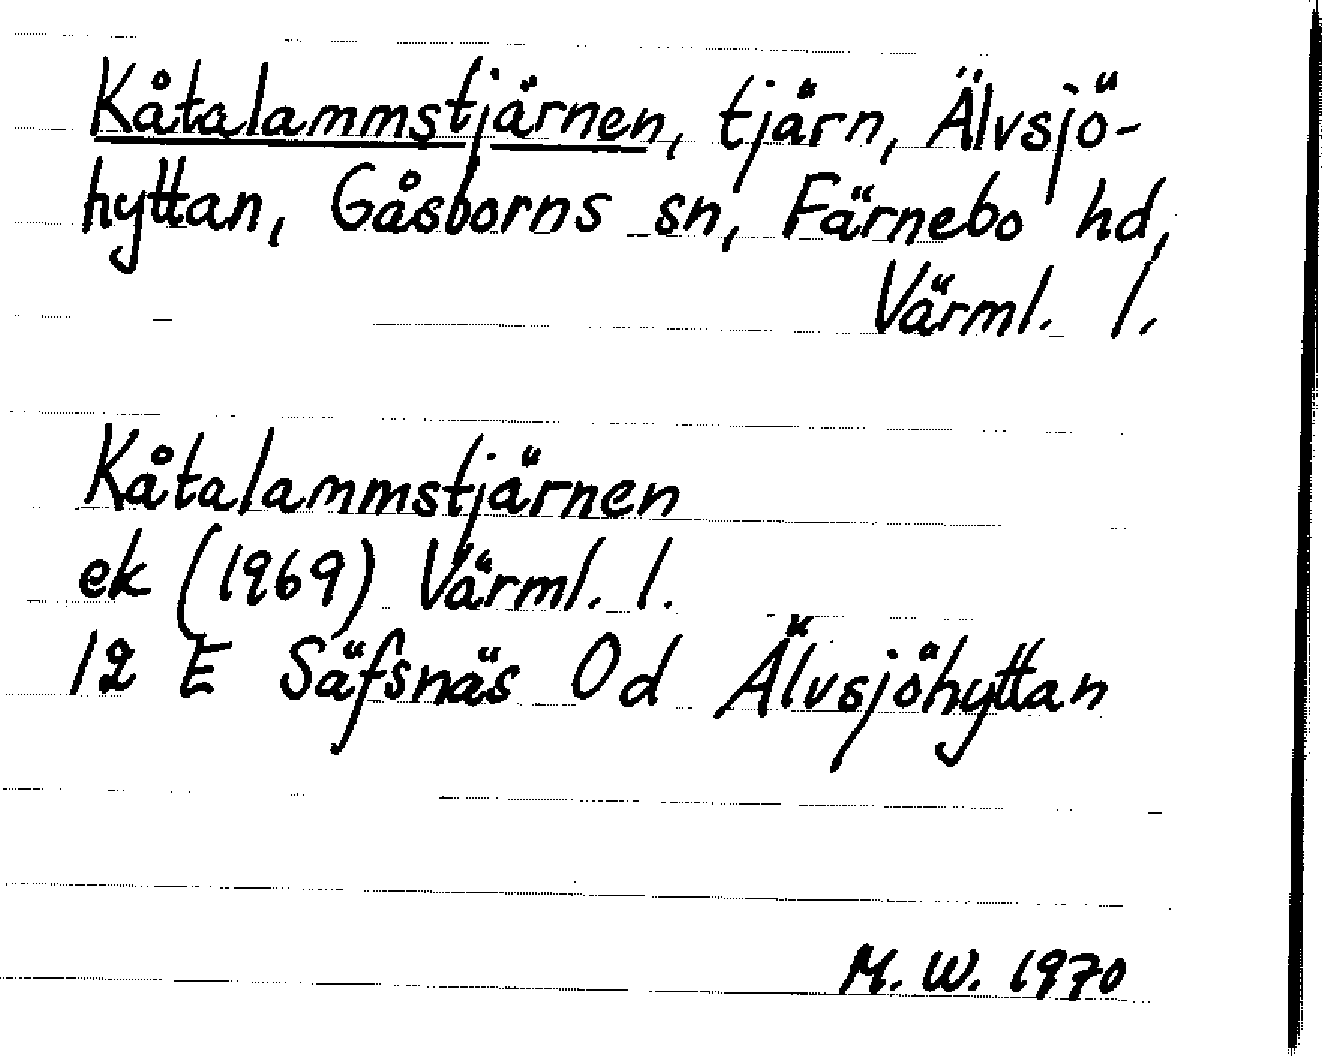 Kåtalammstjärnen, tjärn, Älvsjö-
hyttan, Gåsborns sn, Färnebo hd,
Värml. l.
Kåtalammstjärnen
ek (1969) Värml. l.
12 E Säfsnäs 0d Älvsjöhyttan
M. W. 1970